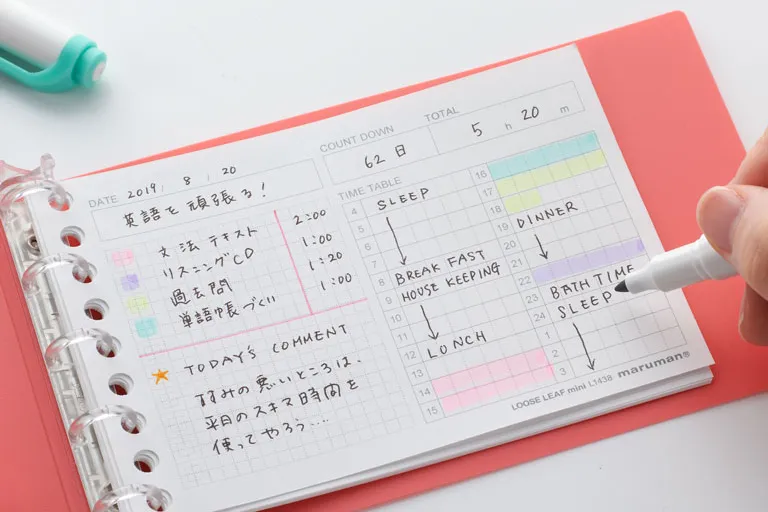 DATE 2019 / 8 / 20
英語を頑張る!
COUNT DOWN
62日
TOTAL
5 h 20 m
文法テキスト 2:00
リスニングCD 1:00
過去問 1:20
単語帳づくり 1:00
TODAY'S COMMENT
平日のスキマ時間を
使ってやろう....
TIME TABLE
4 SLEEP
5
6
7
8 BREAK FAST
9 HOUSE KEEPING
10
11
12 LONCH
13
14
15
16
17
18
19 DINNER
20
21
22
23 BATH TIME
24 SLEEP
1
2
3
LOOSE LEAF mini L1438 maruman®